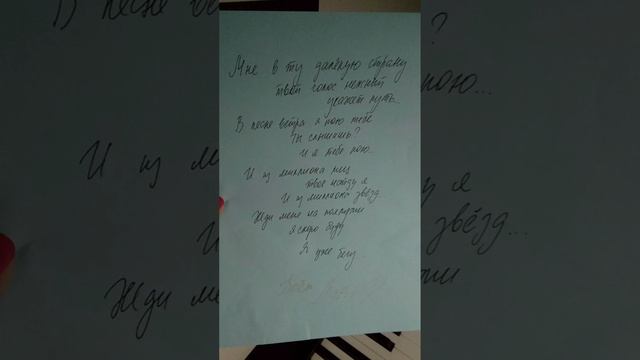 Мне в ту далёкую страну
твой голос нежный
укажет путь...
В песне ветра я пою тебе
Ты слышишь?
И я тебе пою...
И из миллиона лиц
твоё найду я
И из миллиона звёзд.
Жди меня на полпути
я скоро буду
Я уже бегу...